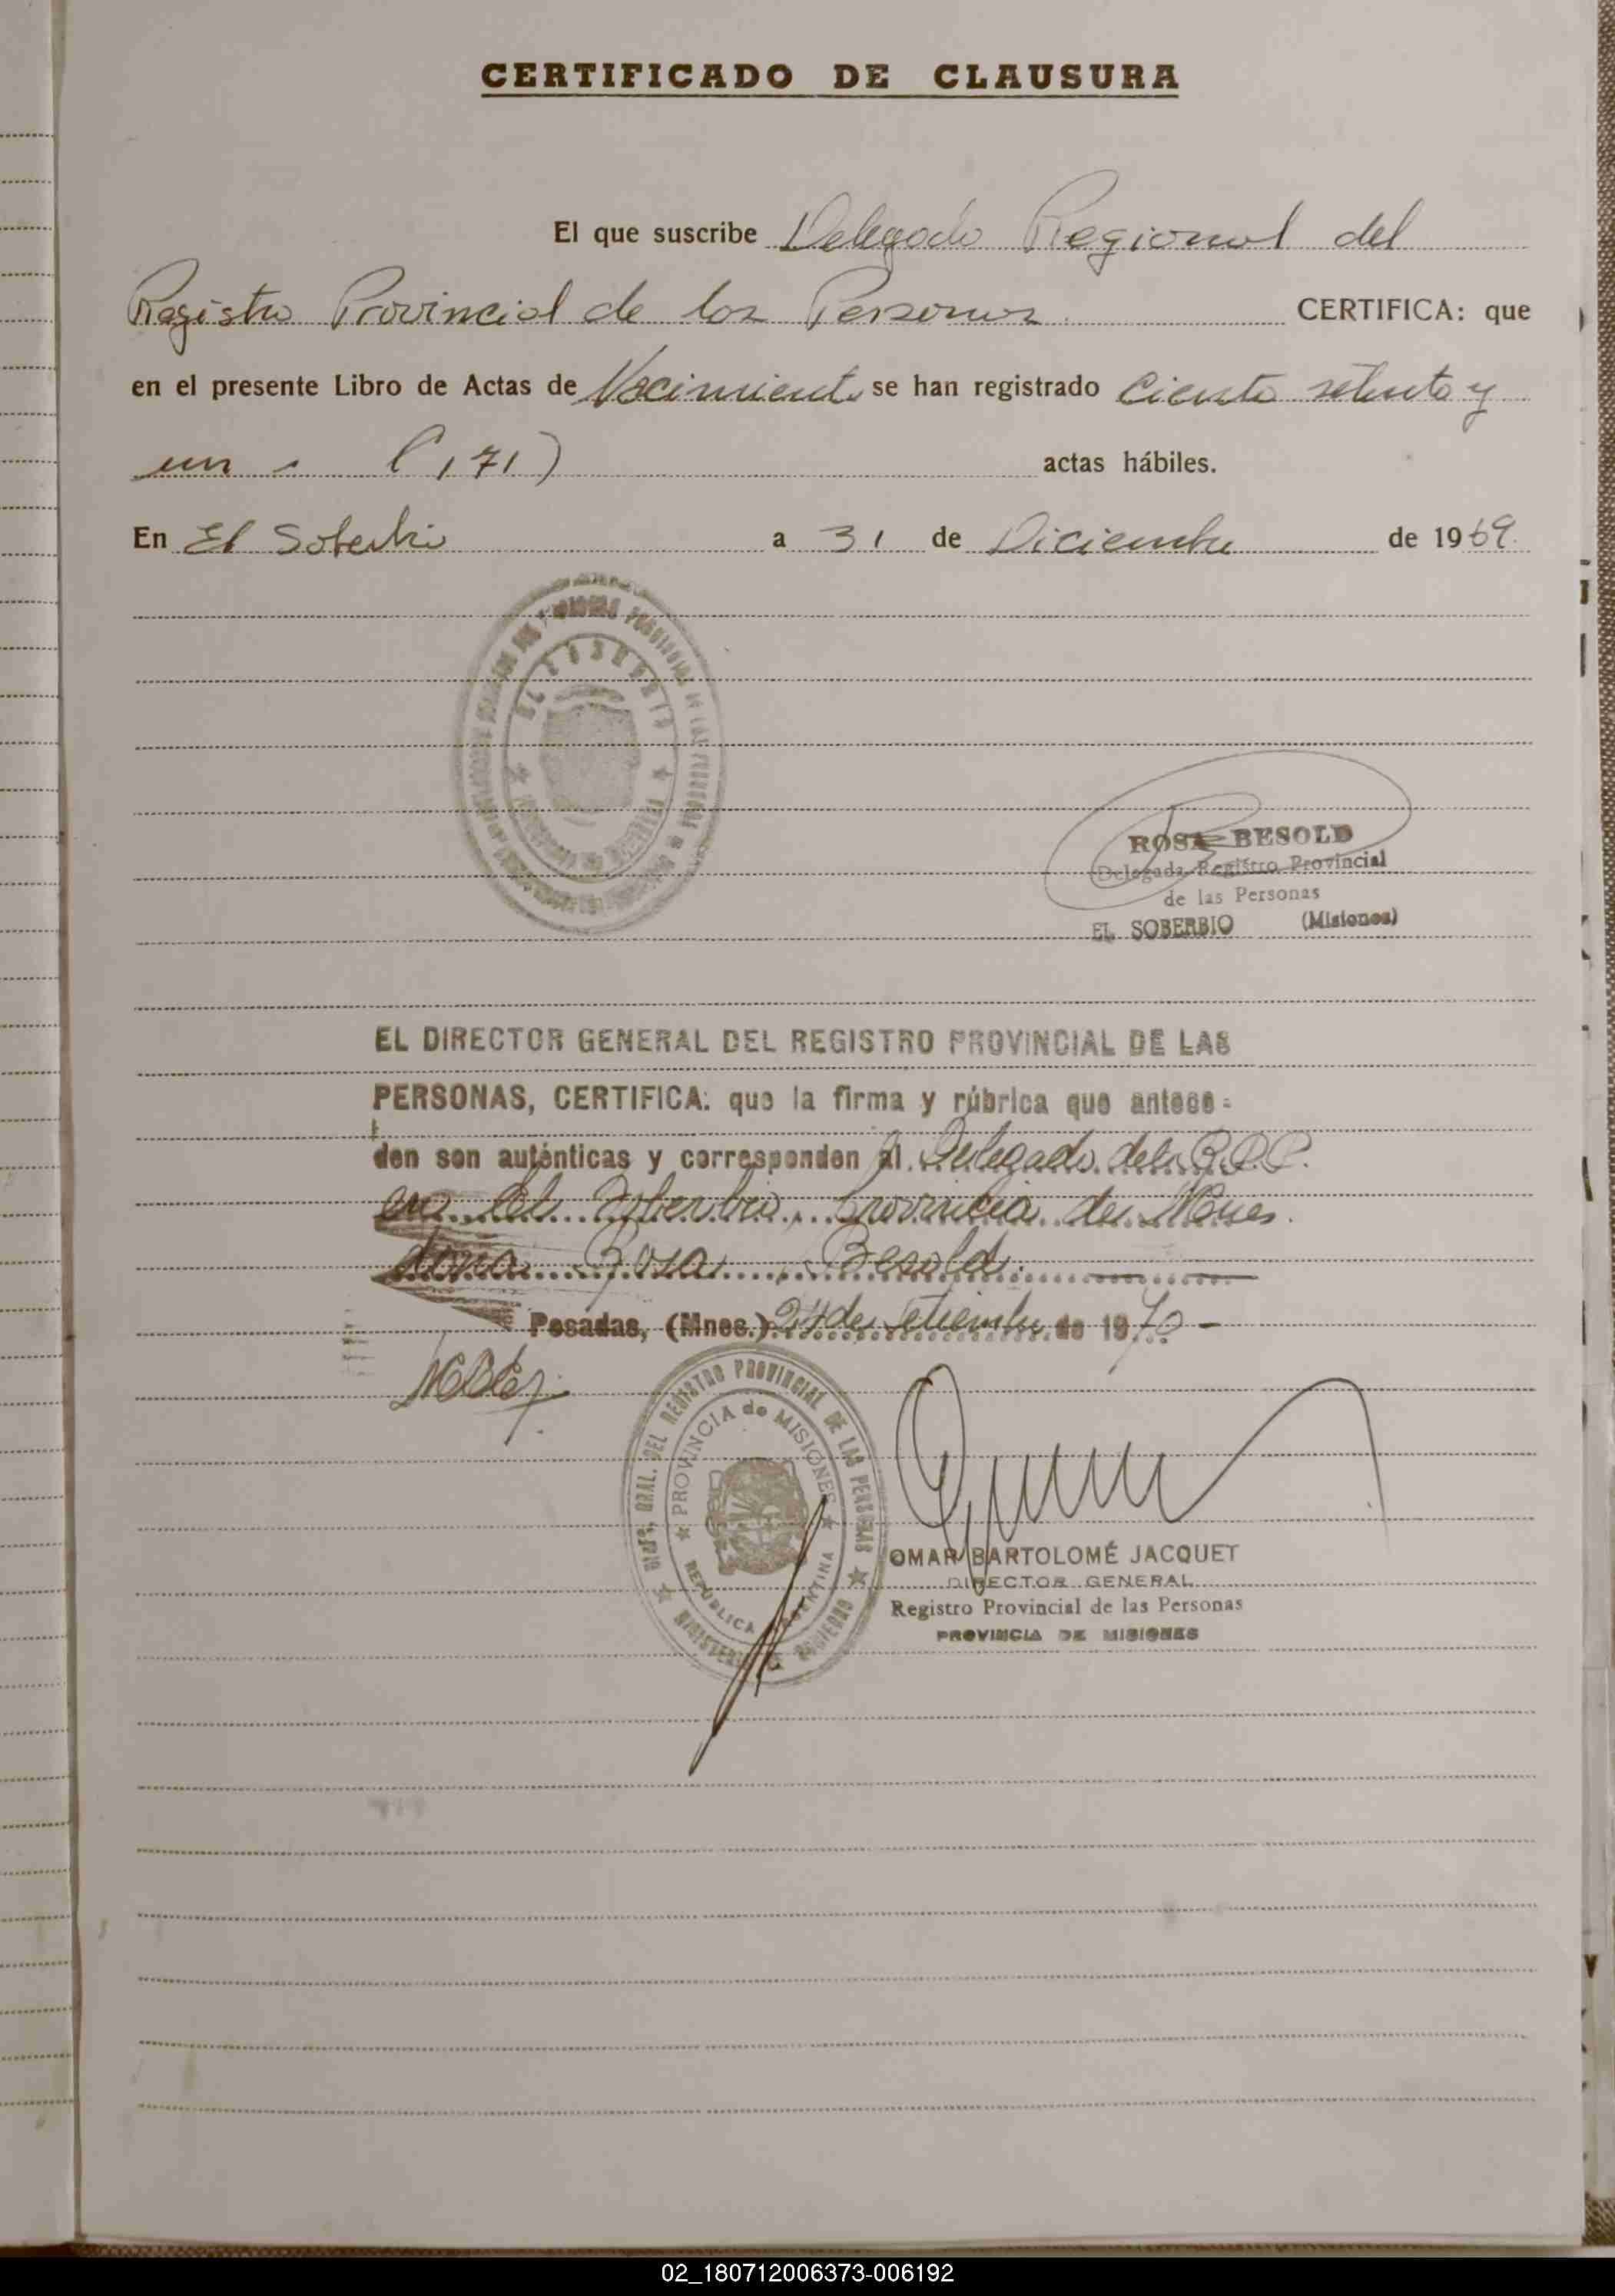 CERTIFICADO DE CLAUSURA
El que suscribe Delegado Regional del
Registro Provincial de las Personas CERTIFICA: que
en el presente Libro de Actas de Nacimiento se han registrado Ciento setenta y
un (171) actas hábiles.
En El Soberbio a 31 de Diciembre de 1969
EL SOBERBIO
ROSA BESOLD
Delegada Registro Provincial
de las Personas
EL SOBERBIO (Misiones)
EL DIRECTOR GENERAL DEL REGISTRO PROVINCIAL DE LAS
PERSONAS, CERTIFICA: que la firma y rúbrica que antece-
den son auténticas y corresponden al Delegado del R.P.P.
en El Soberbio, Provincia de Mnes.
doña Rosa Besold.
Posadas, (Mnes.) 24 de Setiembre de 1970 -
DIRec. GRAL. DEL REGISTRO PROVINCIAL DE LAS PERSONAS
MINISTERIO DE GOBIERNO
PROVINCIA de MISIONES
REPUBLICA ARGENTINA
OMAR BARTOLOMÉ JACQUET
DIRECTOR GENERAL
Registro Provincial de las Personas
PROVINCIA DE MISIONES
02_180712006373-006192